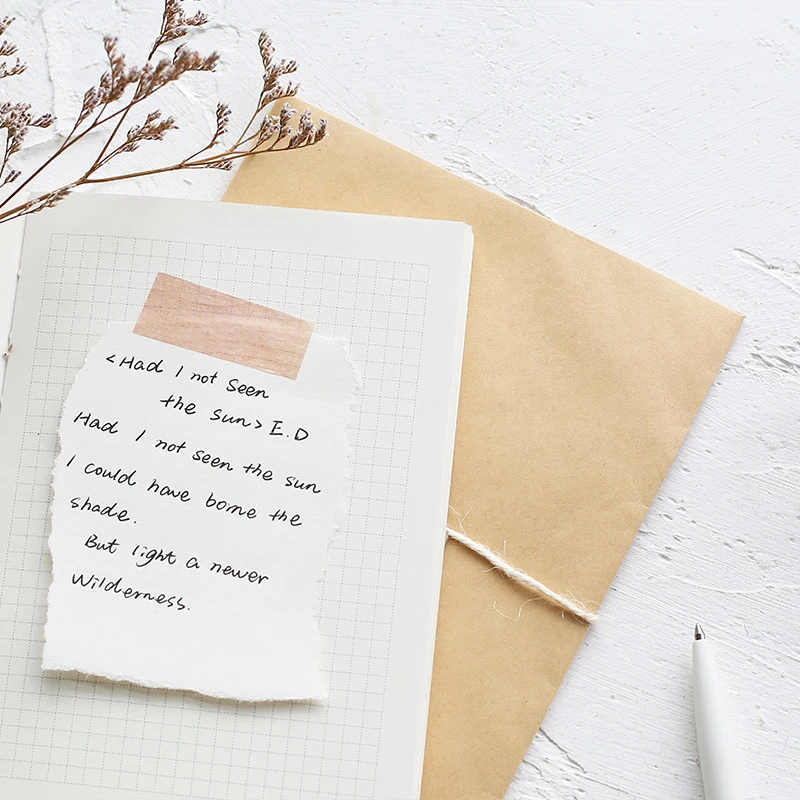 <Had I not seen
the sun> E.D
Had I not seen the sun
I could have borne the
shade.
But light a newer
Wilderness.